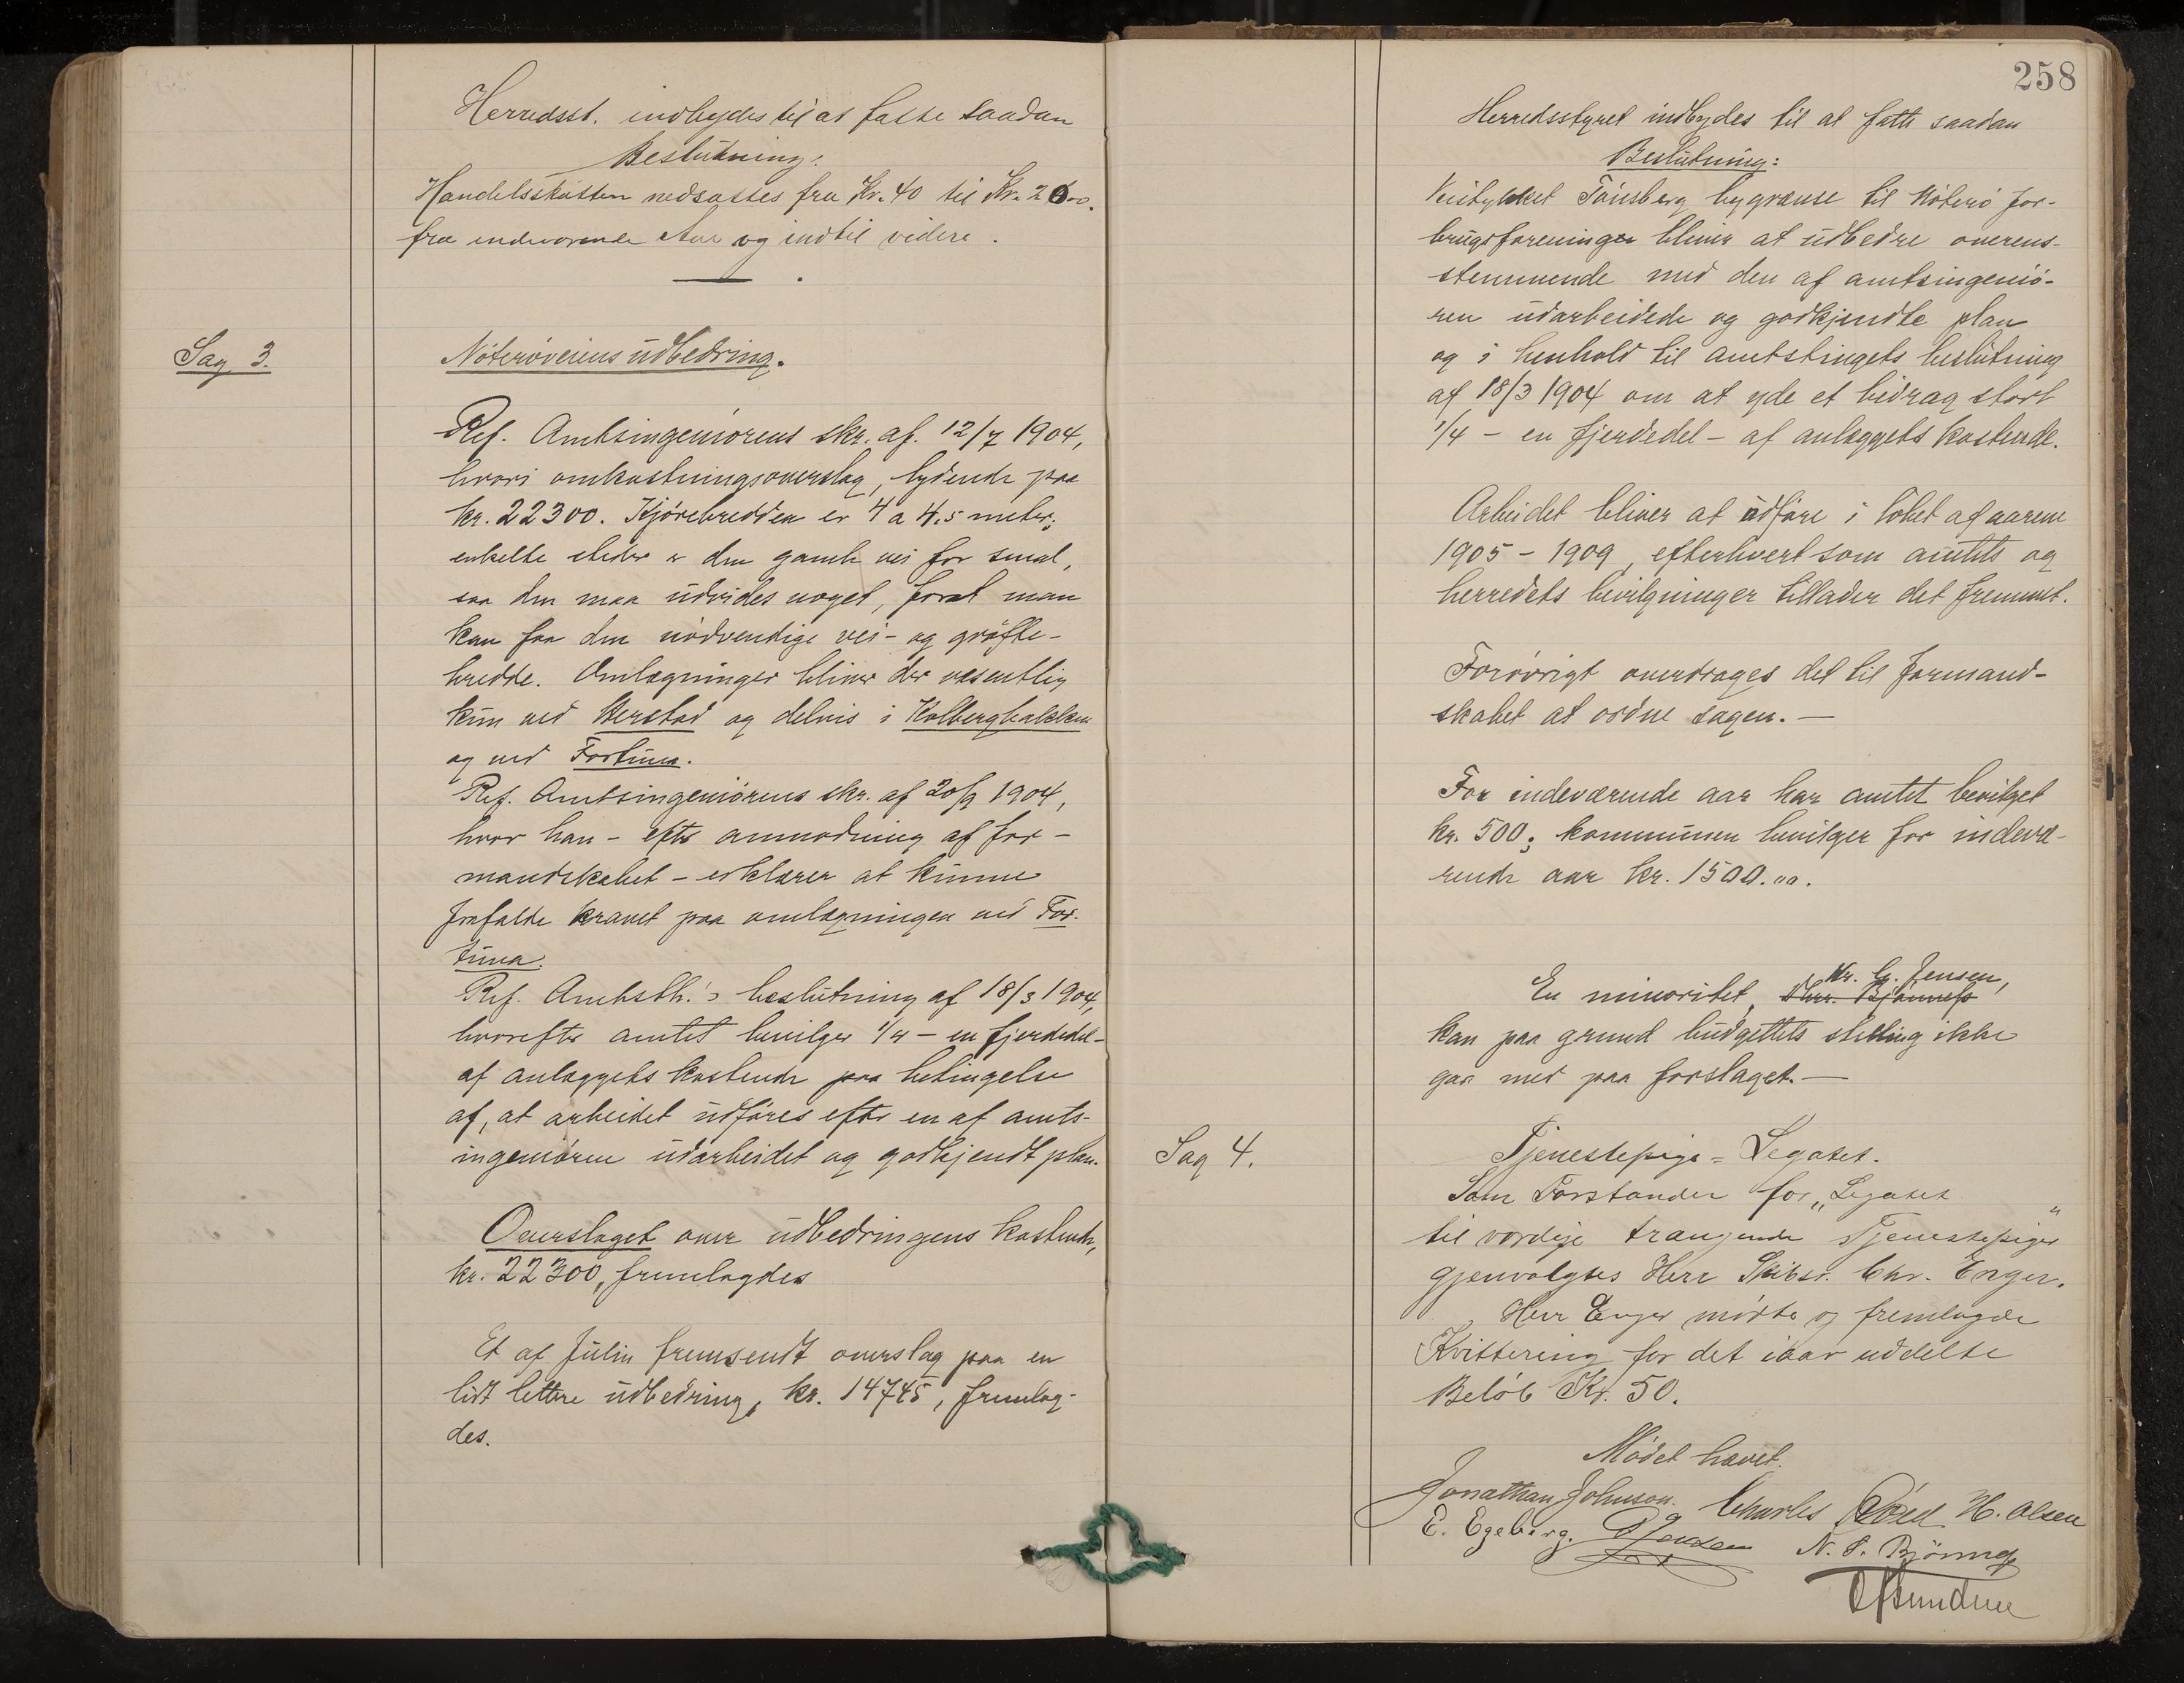 Herredsst. indbydes til at fatte saadan
Beslutning:
Handelsskatten nedsættes fra Kr. 40 til Kr. 20.00.
fra indeværende Aar og indtil videre.
Sag 3.
Nöteröveiens udbedring.
Ref. Amtsingeniörens skr. af. 12/7 1904,
hvori omkostningsoverslag, lydende paa
kr. 22300. Kjörebredden er 4 a 4.5 meter;
enkelte steder er den gamle vei for smal,
saa den maa udvides noget, forat man
kan faa den nödvendige vei- og gröfte-
bredde. Omlægninger bliver der væsentlig
kun ved Herstad og delvis i Kolbergbakken
og ved Fortuna.
Ref. Amtsingeniörens skr. af 20/9 1904,
hvor han - efter anmodning af for-
mandskabet - erklærer at kunne
frafalde kravet paa omlægningen ved For-
tuna.
Ref. Amtsth.'s beslutning af 18/3 1904,
hvorefter amtet bevilger 1/4 - en fjerdedel-
af anlæggets kostende paa betingelse
af, at arbeidet udföres efter en af amts-
ingeniören udarbeidet og godkjendt plan.
Overslaget over udbedringens kostende,
kr. 22300, fremlagdes
Et af Julin fremsendt overslag paa en
lidt lettere udbedring, kr. 14745, fremlag-
des.
258
Herredsstyret indbydes til at fatte saadan
Beslutning:
Veistykket Tönsberg bygrænse til Nöterö for-
brugsforening bliver at udbedre overens-
stemmende med den af amtsingeniö-
ren udarbeidede og godkjendte plan
og i henhold til amtstingets beslutning
af 18/3 1904 om at yde et bidrag stort
1/4 - en fjerdedel - af anlæggets kostende.
Arbeidet bliver at udföre i löbet af aarene
1905 - 1909, efterhvert som amtets og
herredets bevilgninger tillader det fremmet.
Forövrigt overdrages det til formand-
skabet at ordne sagen. -
For indeværende aar har amtet bevilget
kr. 500; kommunen bevilger for indevæ-
rende aar kr. 1500.00.
Kr. G. Jensen,
En minoritet, Hrr. Bjönness
kan paa grund budgettets stilling ikke
gaa med paa forslaget. -
Sag 4.
Tjenestepige-Legatet.
Som Forstander for „Legatet
til værdige trængende Tjenestepiger“
gjenvalgtes Herr Skibsr. Chr. Enger.
Herr Enger mödte og fremlagde
Kvittering for det iaar uddelte
Belöb Kr. 50.
Mödet hævet.
Jonathan Johnson. Charles Röed H. Olsen
E. Egeberg. Jensen N. S. Bjönness